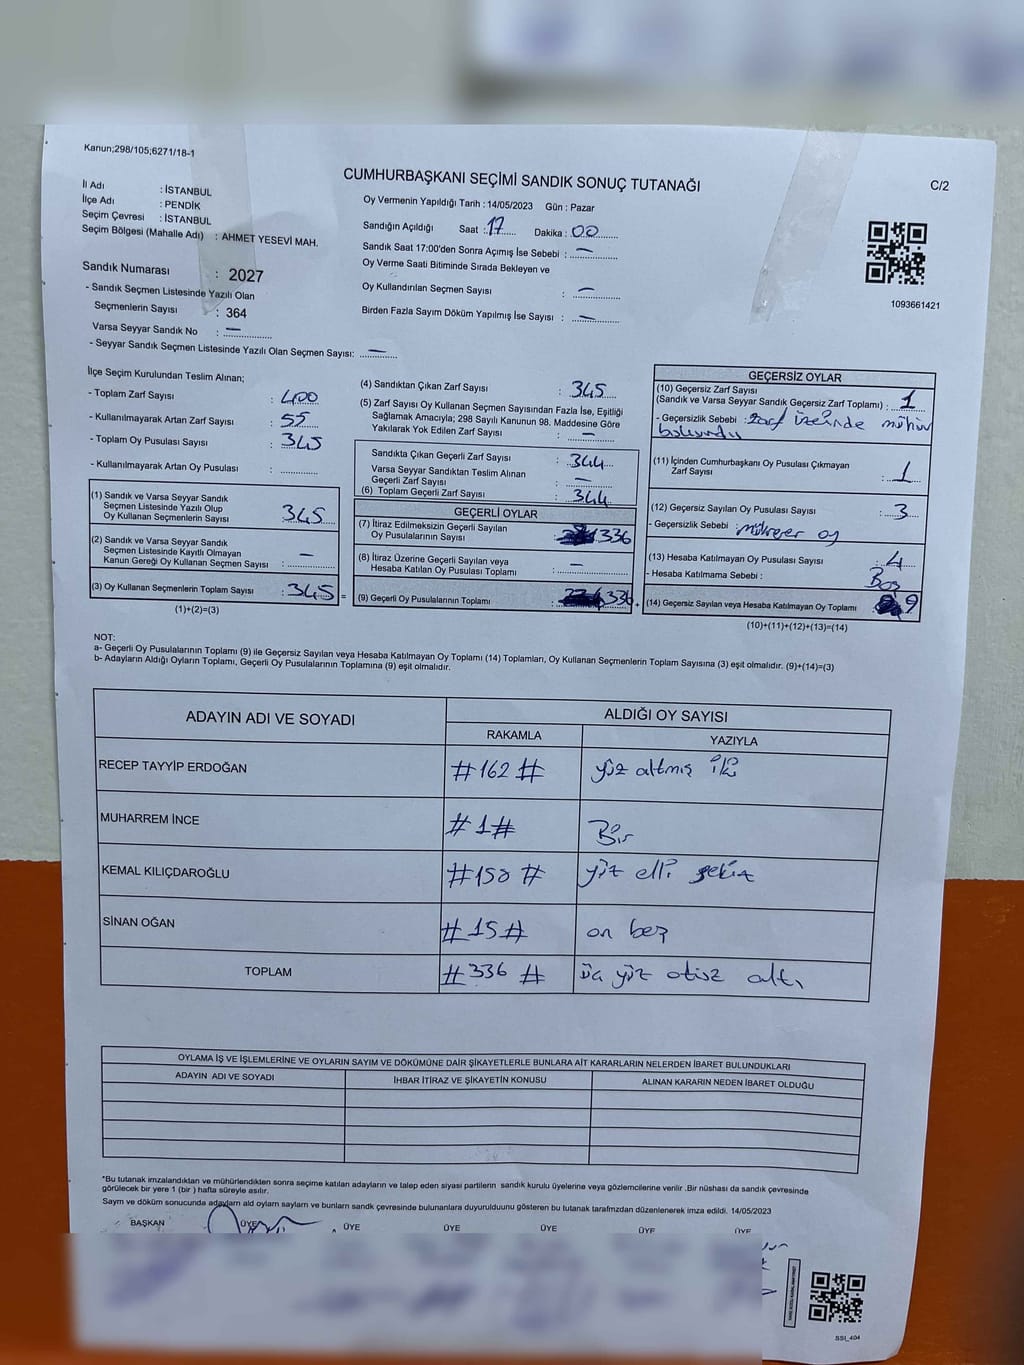 Kanun;298/105;6271/18-1
CUMHURBAŞKANI SEÇİMİ SANDIK SONUÇ TUTANAĞI
C/2
İl Adı : İSTANBUL
İlçe Adı : PENDİK
Seçim Çevresi : İSTANBUL
Seçim Bölgesi (Mahalle Adı) : AHMET YESEVİ MAH.
Sandık Numarası : 2027
- Sandık Seçmen Listesinde Yazılı Olan
Seçmenlerin Sayısı : 364
Varsa Seyyar Sandık No : —
- Seyyar Sandık Seçmen Listesinde Yazılı Olan Seçmen Sayısı: —
Oy Vermenin Yapıldığı Tarih : 14/05/2023 Gün : Pazar
Sandığın Açıldığı Saat : 17 Dakika : 00
Sandık Saat 17:00'den Sonra Açımış İse Sebebi : —
Oy Verme Saati Bitiminde Sırada Bekleyen ve
Oy Kullandırılan Seçmen Sayısı : —
Birden Fazla Sayım Döküm Yapılmış İse Sayısı : —
1093661421
İlçe Seçim Kurulundan Teslim Alınan;
- Toplam Zarf Sayısı : 400
- Kullanılmayarak Artan Zarf Sayısı : 55
- Toplam Oy Pusulası Sayısı : 345
- Kullanılmayarak Artan Oy Pusulası :
(1) Sandık ve Varsa Seyyar Sandık
Seçmen Listesinde Yazılı Olup
Oy Kullanan Seçmenlerin Sayısı 345
(2) Sandık ve Varsa Seyyar Sandık
Seçmen Listesinde Kayıtlı Olmayan
Kanun Gereği Oy Kullanan Seçmen Sayısı : —
(3) Oy Kullanan Seçmenlerin Toplam Sayısı : 345 =
(1)+(2)=(3)
(4) Sandıktan Çıkan Zarf Sayısı : 345
(5) Zarf Sayısı Oy Kullanan Seçmen Sayısından Fazla İse, Eşitliği
Sağlamak Amacıyla; 298 Sayılı Kanunun 98. Maddesine Göre
Yakılarak Yok Edilen Zarf Sayısı : —
Sandıkta Çıkan Geçerli Zarf Sayısı : 344
Varsa Seyyar Sandıktan Teslim Alınan
Geçerli Zarf Sayısı : —
(6) Toplam Geçerli Zarf Sayısı : 344
GEÇERLİ OYLAR
(7) İtiraz Edilmeksizin Geçerli Sayılan
Oy Pusulalarının Sayısı 336
(8) İtiraz Üzerine Geçerli Sayılan veya
Hesaba Katılan Oy Pusulası Toplamı : —
(9) Geçerli Oy Pusulalarının Toplamı : 336 +
GEÇERSİZ OYLAR
(10) Geçersiz Zarf Sayısı
(Sandık ve Varsa Seyyar Sandık Geçersiz Zarf Toplamı) : 1
- Geçersizlik Sebebi : zarf üzerinde mühür
bulundu
(11) İçinden Cumhurbaşkanı Oy Pusulası Çıkmayan
Zarf Sayısı : 1
(12) Geçersiz Sayılan Oy Pusulası Sayısı : 3
- Geçersizlik Sebebi : mükerrer oy
(13) Hesaba Katılmayan Oy Pusulası Sayısı : 4
- Hesaba Katılmama Sebebi : Boş
(14) Geçersiz Sayılan veya Hesaba Katılmayan Oy Toplamı : 9
(10)+(11)+(12)+(13)=(14)
NOT:
a- Geçerli Oy Pusulalarının Toplamı (9) ile Geçersiz Sayılan veya Hesaba Katılmayan Oy Toplamı (14) Toplamları, Oy Kullanan Seçmenlerin Toplam Sayısına (3) eşit olmalıdır. (9)+(14)=(3)
b- Adayların Aldığı Oyların Toplamı, Geçerli Oy Pusulalarının Toplamına (9) eşit olmalıdır.
ADAYIN ADI VE SOYADI
ALDIĞI OY SAYISI
RAKAMLA YAZIYLA
RECEP TAYYİP ERDOĞAN #162# yüz altmış iki
MUHARREM İNCE #1# Bir
KEMAL KILIÇDAROĞLU #158# yüz elli sekiz
SİNAN OĞAN #15# on beş
TOPLAM #336# üç yüz otuz altı
OYLAMA İŞ VE İŞLEMLERİNE VE OYLARIN SAYIM VE DÖKÜMÜNE DAİR ŞİKAYETLERLE BUNLARA AİT KARARLARIN NELERDEN İBARET BULUNDUKLARI
ADAYIN ADI VE SOYADI İHBAR İTİRAZ VE ŞİKAYETİN KONUSU ALINAN KARARIN NEDEN İBARET OLDUĞU
*Bu tutanak imzalandıktan ve mühürlendikten sonra seçime katılan adayların ve talep eden siyasi partilerin sandık kurulu üyelerine veya gözlemcilerine verilir .Bir nüshası da sandık çevresinde
görülecek bir yere 1 (bir ) hafta süreyle asılır.
Sayım ve döküm sonucunda adayların ald oyların sayların ve bunların sandk çevresinde bulunanlara duyurulduunu gösteren bu tutanak tarafmzdan düzenlenerek imza edildi. 14/05/2023
BAŞKAN ÜYE ÜYE ÜYE ÜYE ÜYE ÜYE
SSI_404